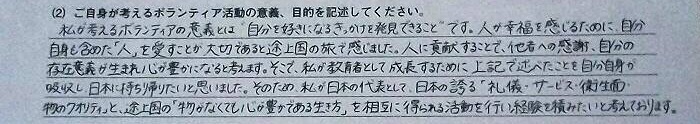 (2) ご自身が考えるボランティア活動の意義、目的を記述してください。
私が考えるボランティアの意義とは"自分を好きになるきっかけを発見できること"です。人が幸福を感じるために、自分
自身も含めた"人"を愛すことが大切であると途上国の旅で感じました。人に貢献することで、他者への感謝、自分の
存在意義が生まれ心が豊かになると考えます。そこで、私が教育者として成長するために上記で述べたことを自分自身が
吸収し日本に持ち帰りたいと思いました。そのため、私が日本の代表として、日本の誇る"礼儀・サービス・衛生面・
物のクオリティ"と、途上国の"物がなくても心が豊かである生き方"を相互に得られる活動を行い経験を積みたいと考えております。